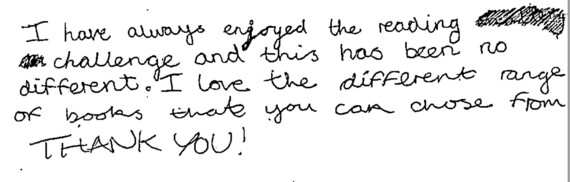 I have always enjoyed the reading
challenge and this has been no
different. I love the different range
of books that you can chose from
THANK YOU!